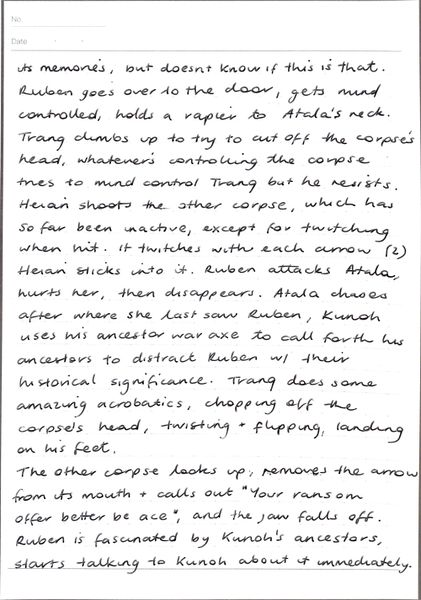 No.
Date
its memories, but doesnt know if this is that.
Ruben goes over to the door, gets mind
controlled, holds a rapier to Atala's neck.
Trang climbs up to try to cut off the corpse's
head, whatever's controlling the corpse
tries to mind control Trang but he resists.
Heian shoots the other corpse, which has
so far been inactive, except for twitching
when hit. It twitches with each arrow (2)
Heian sticks into it. Ruben attacks Atala,
hurts her, then disappears. Atala chases
after where she last saw Ruben, Kunoh
uses his ancestor war axe to call forth his
ancestors to distract Ruben w/ their
historical significance. Trang does some
amazing acrobatics, chopping off the
corpse's head, twisting + flipping, landing
on his feet.
The other corpse looks up, removes the arrow
from its mouth + calls out "Your ransom
offer better be ace", and the jaw falls off.
Ruben is fascinated by Kunoh's ancestors,
starts talking to Kunoh about it immediately.